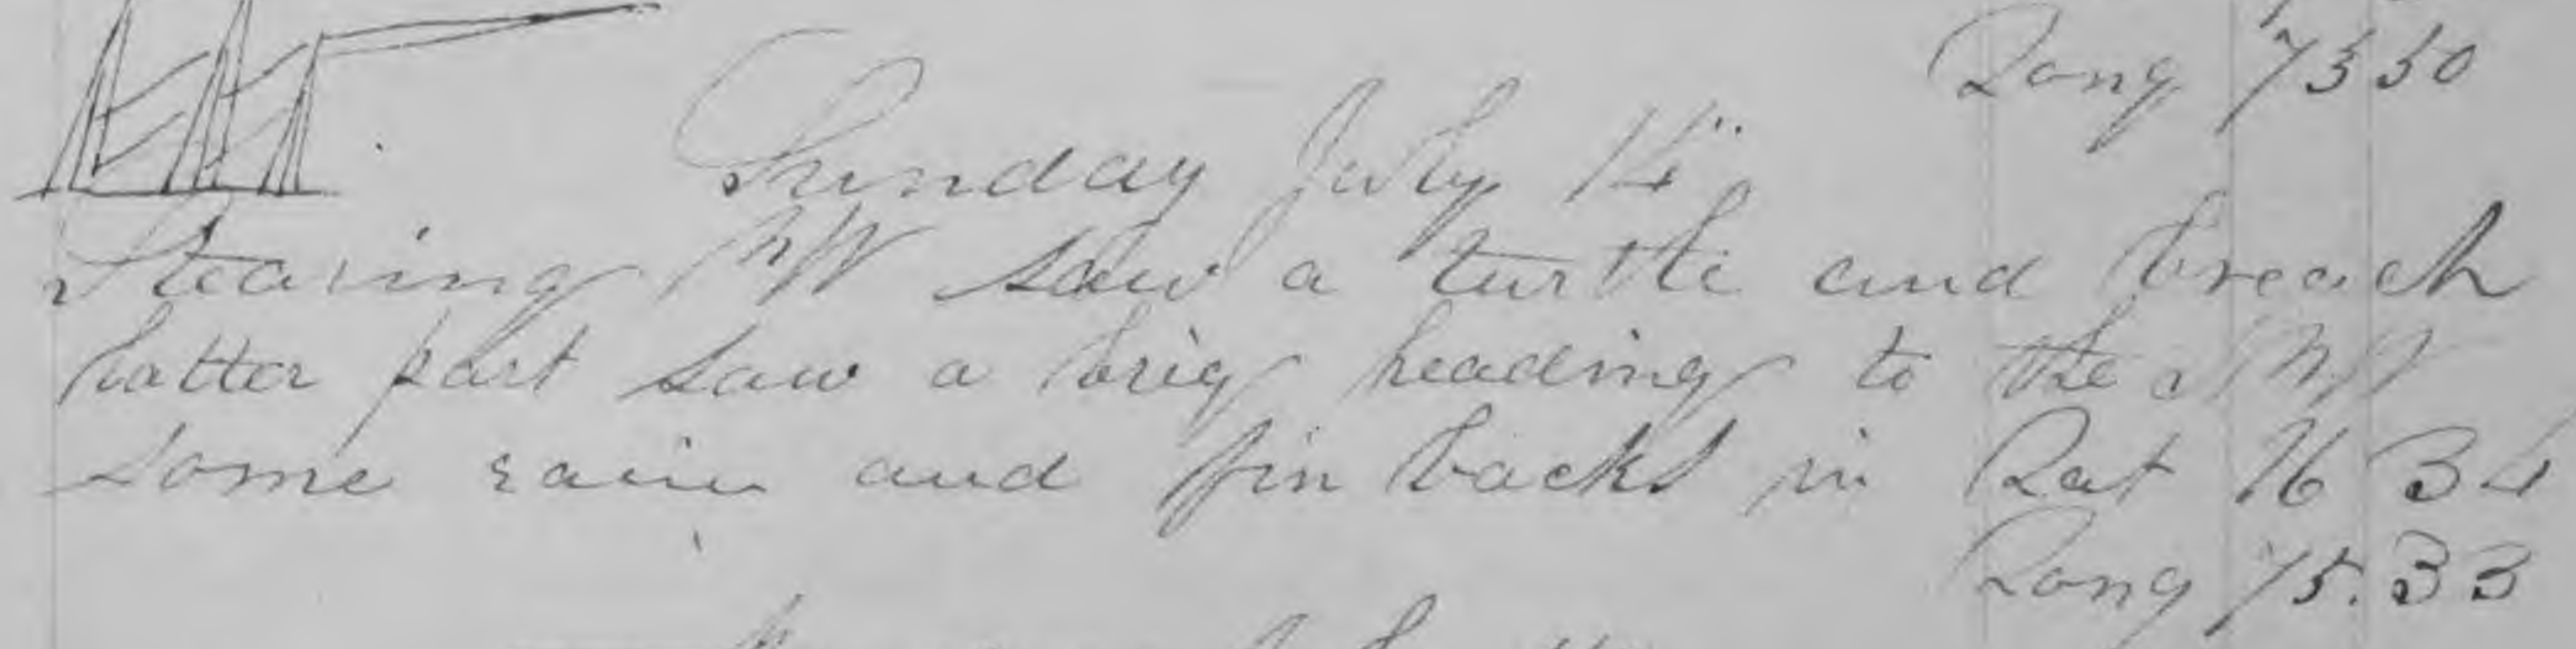 Long 73 50
Sunday July 14"
Stearing NW saw a turtle and breach
latter part saw a brig heading to the
some rain and fin backs in Lat 36 34
Long 75.33